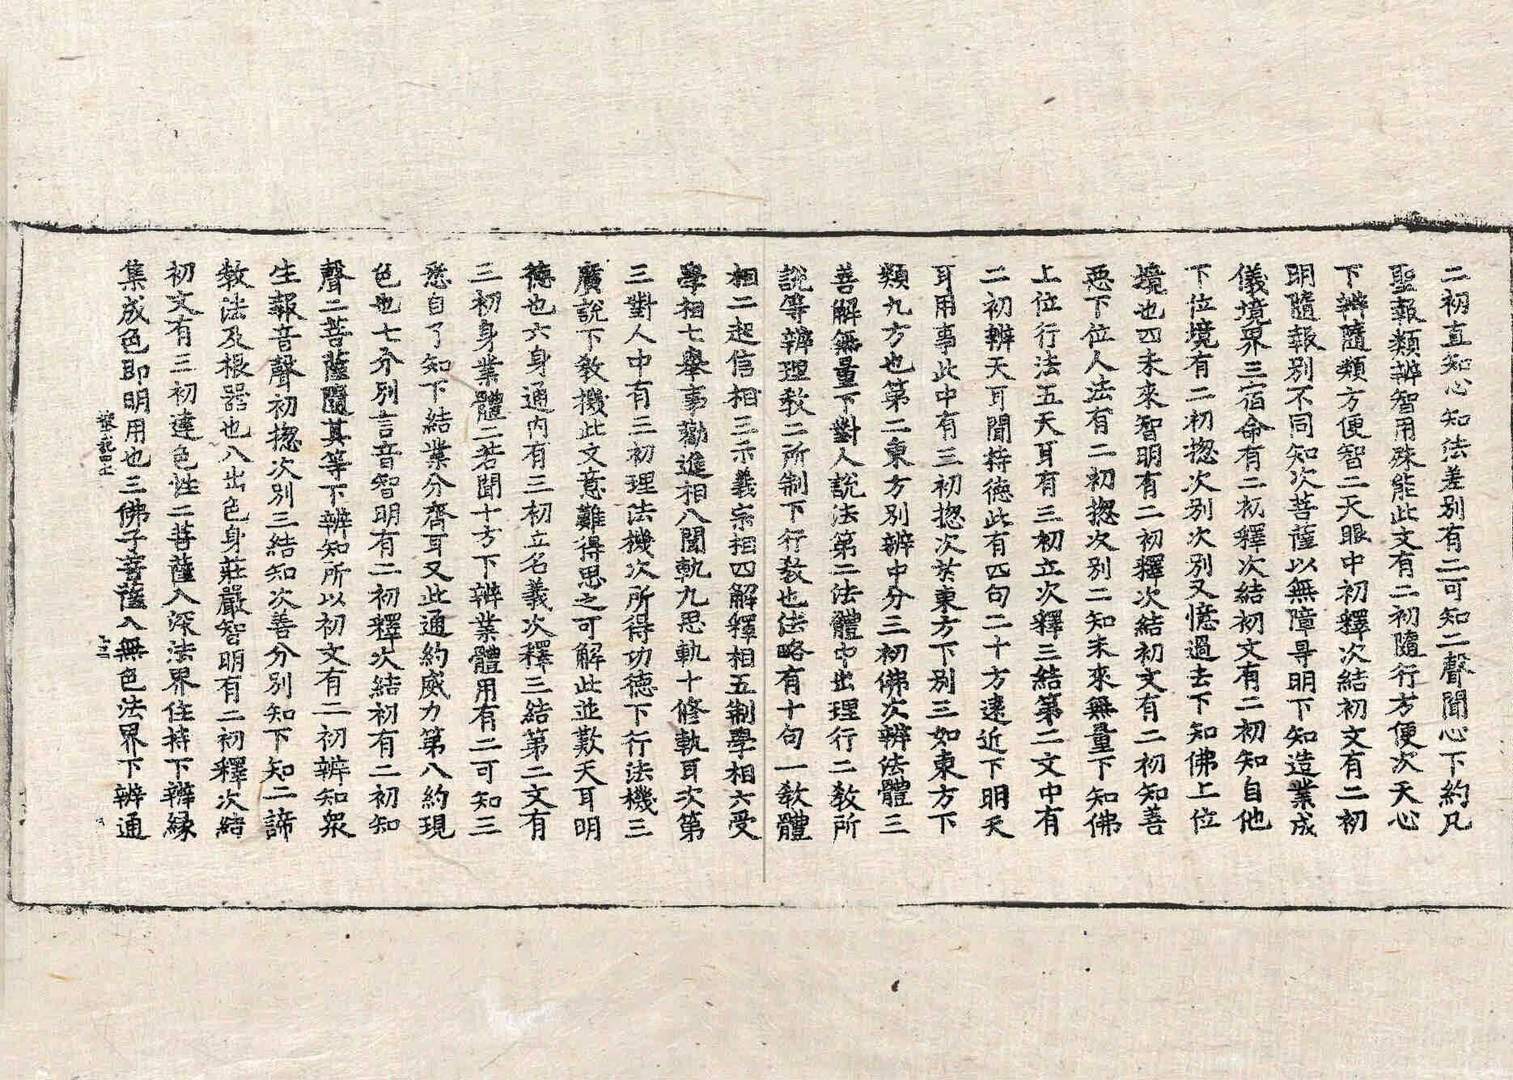 二初直知心知法差別有二可知二聲聞心下約凡
聖報類辨智用殊能此文有二初隨行方便次天心
下辨隨類方便智二天眼中初釋次結初文有二初
明隨報別不同知次菩薩以無障㝵明下知造業成
儀境界三宿命有二初釋次結初文有二初知自他
下位境有二初揔次別次別又憶過去下知佛上位
境也四未來智明有二初釋次結初文有二初知善
惡下位人法有二初揔次別二知未來無量下知佛
上位行法五天耳有三初立次釋三結第二文中有
二初辨天耳聞持德此有四句二十方遠近下明天
耳用事此中有三初揔次於東方下別三如東方下
類九方也第二東方別辨中分三初佛次辨法體三
善解無量下對人說法第二法體中出理行二教所
說等辨理教二所制下行教也法略有十句一教體
相二起信相三示義宗相四解釋相五制學相六受
學相七舉事勸進相八聞軌九思軌十修軌耳次第
三對人中有三初理法機次所得功德下行法機三
廣說下教機此文意難得思之可解此並歎天耳明
德也六身通內有三初立名義次釋三結第二文有
三初身業體二若聞十方下辨業體用有二可知三
悉自了知下結業分齊耳又此通約威力第八約現
色也七分別言音智明有二初釋次結初有二初知
聲二菩薩隨其等下辨知所以初文有二初辨知衆
生報音聲初揔次別三結知次善分別知下知二諦
教法及根器也八出色身莊嚴智明有二初釋次結
初文有三初達色性二菩薩入深法界住持下辨緣
集成色即明用也三佛子菩薩入無色法界下辨通